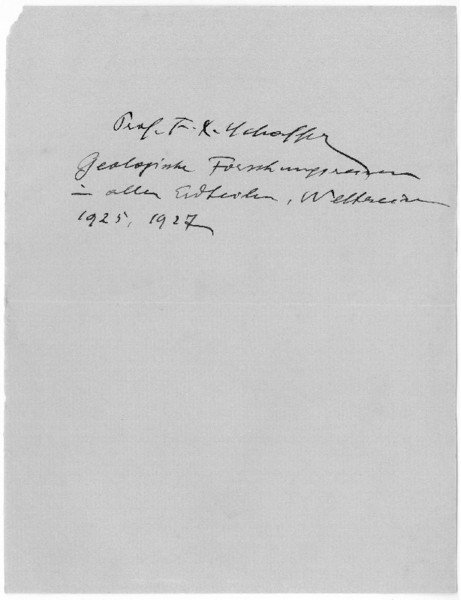 Prof. Fr. X. Schaffer
Geologische Forschungsreisen
in allen Erdteilen, Weltreisen
1925, 1927